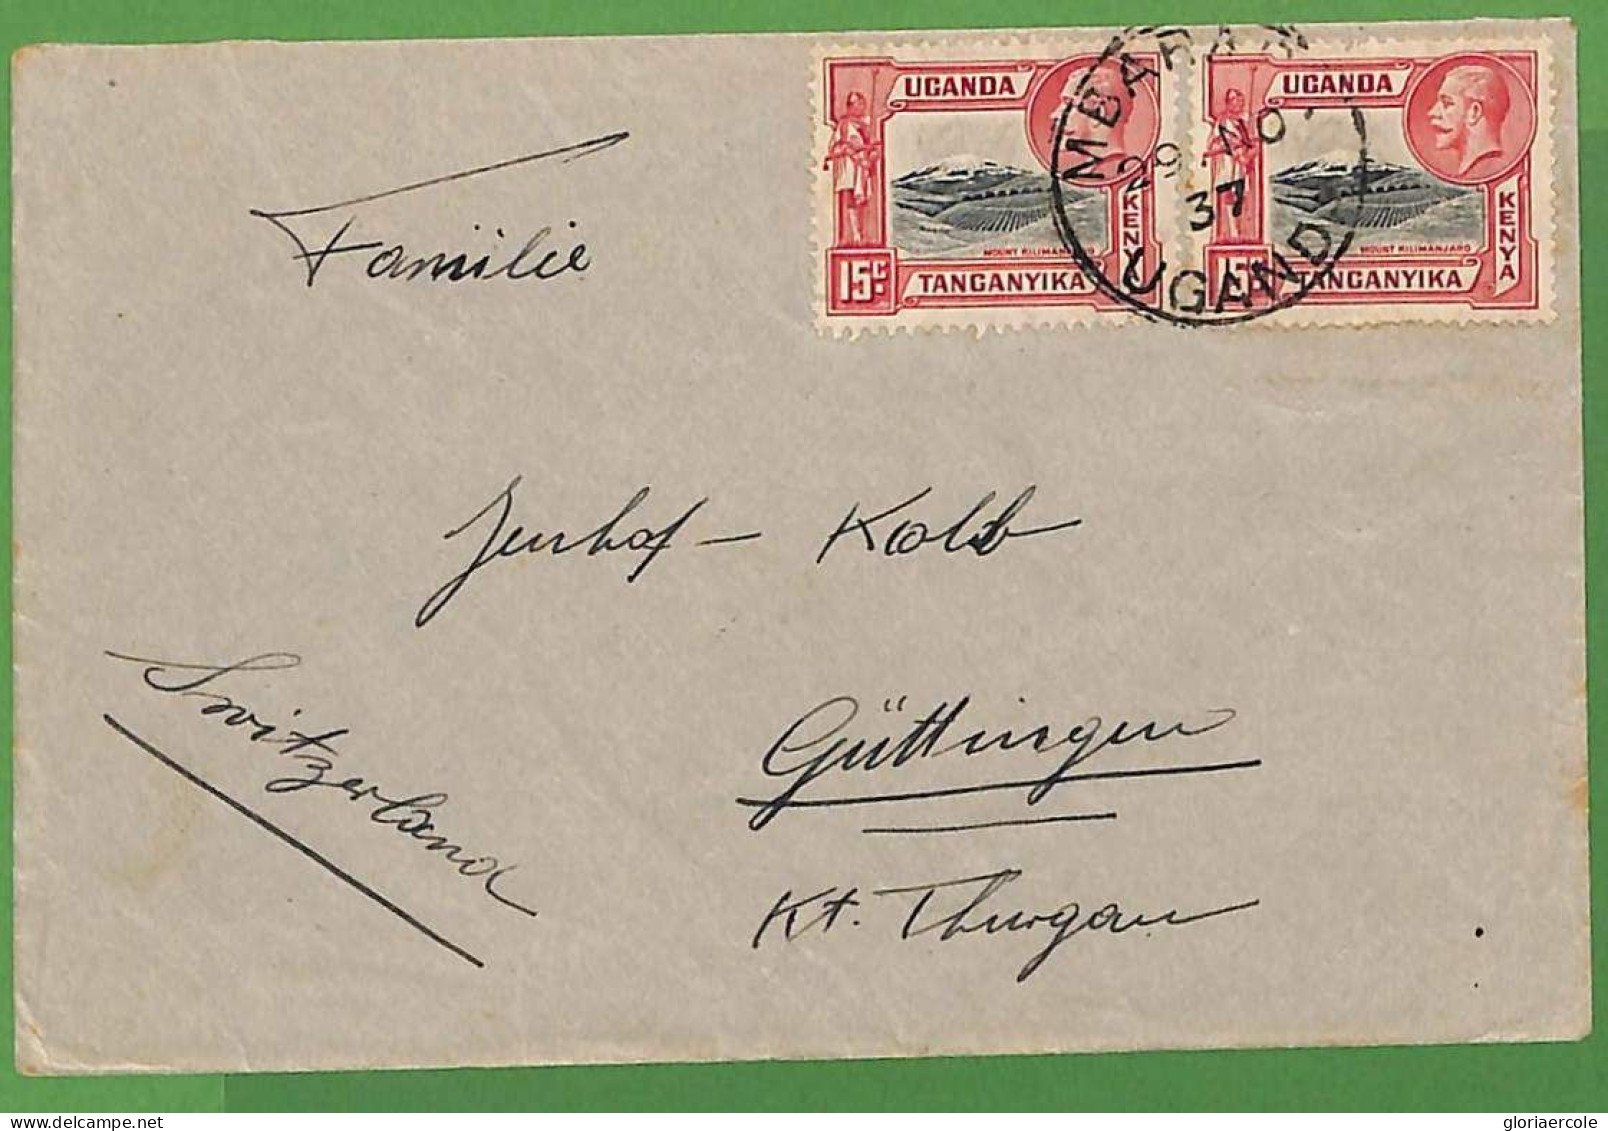 UGANDA
KENYA
MOUNT KILIMANJARO
15c
TANGANYIKA
UGANDA
KENYA
MOUNT KILIMANJARO
TANGANYIKA
29 NO
37
UGANDA
Familie
Kolb
Switzerland
Güttingen
Kt. Thurgau
gloriaercole